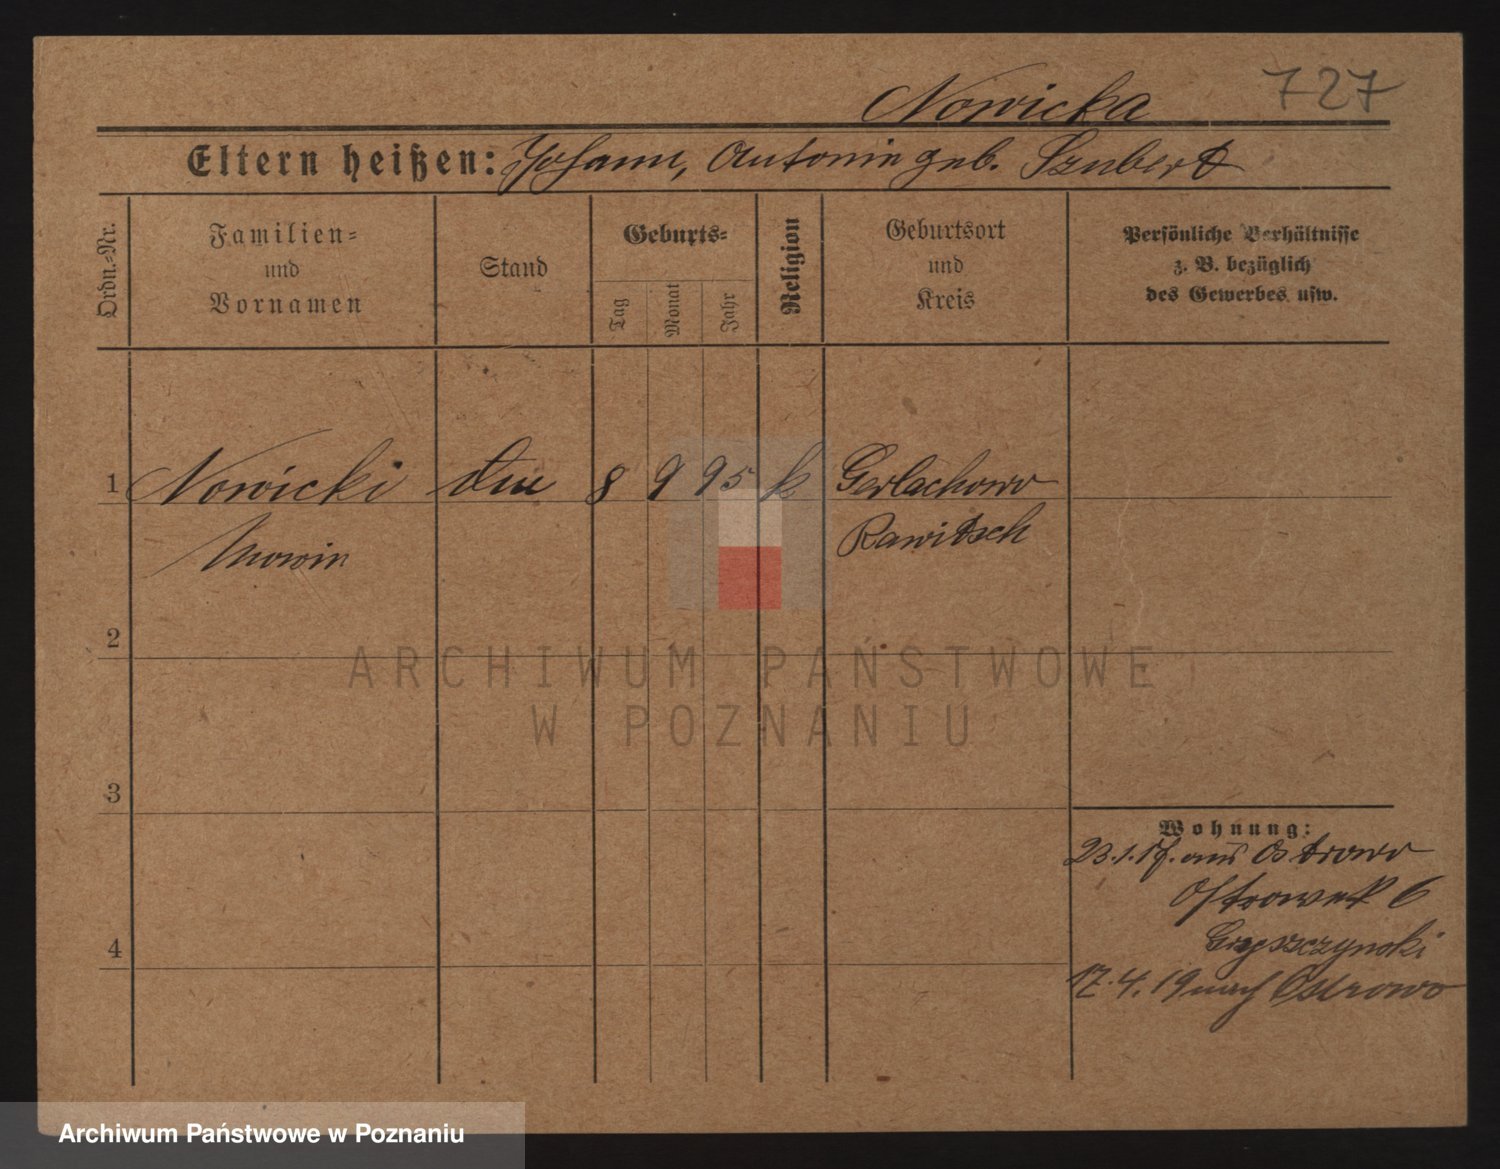 Nowicka 727
Eltern heißen: Johann, Antonie geb. Szubert
Ordn.-Nr.
Familien-
und
Vornamen
Stand
Geburts-
Tag
Monat
Jahr
Religion
Geburtsort
und
Kreis
Persönliche Verhältnisse
z. B. bezüglich
des Gewerbes usw.
1 Nowicki 8 9 95 k Gerlachowo
Rawitsch
2
3
4
Wohnung:
23.1.17. aus Ostrowo
6
17.4.19 nach Ostrowo
ARCHIWUM PAŃSTWOWE
W POZNANIU
Archiwum Państwowe w Poznaniu